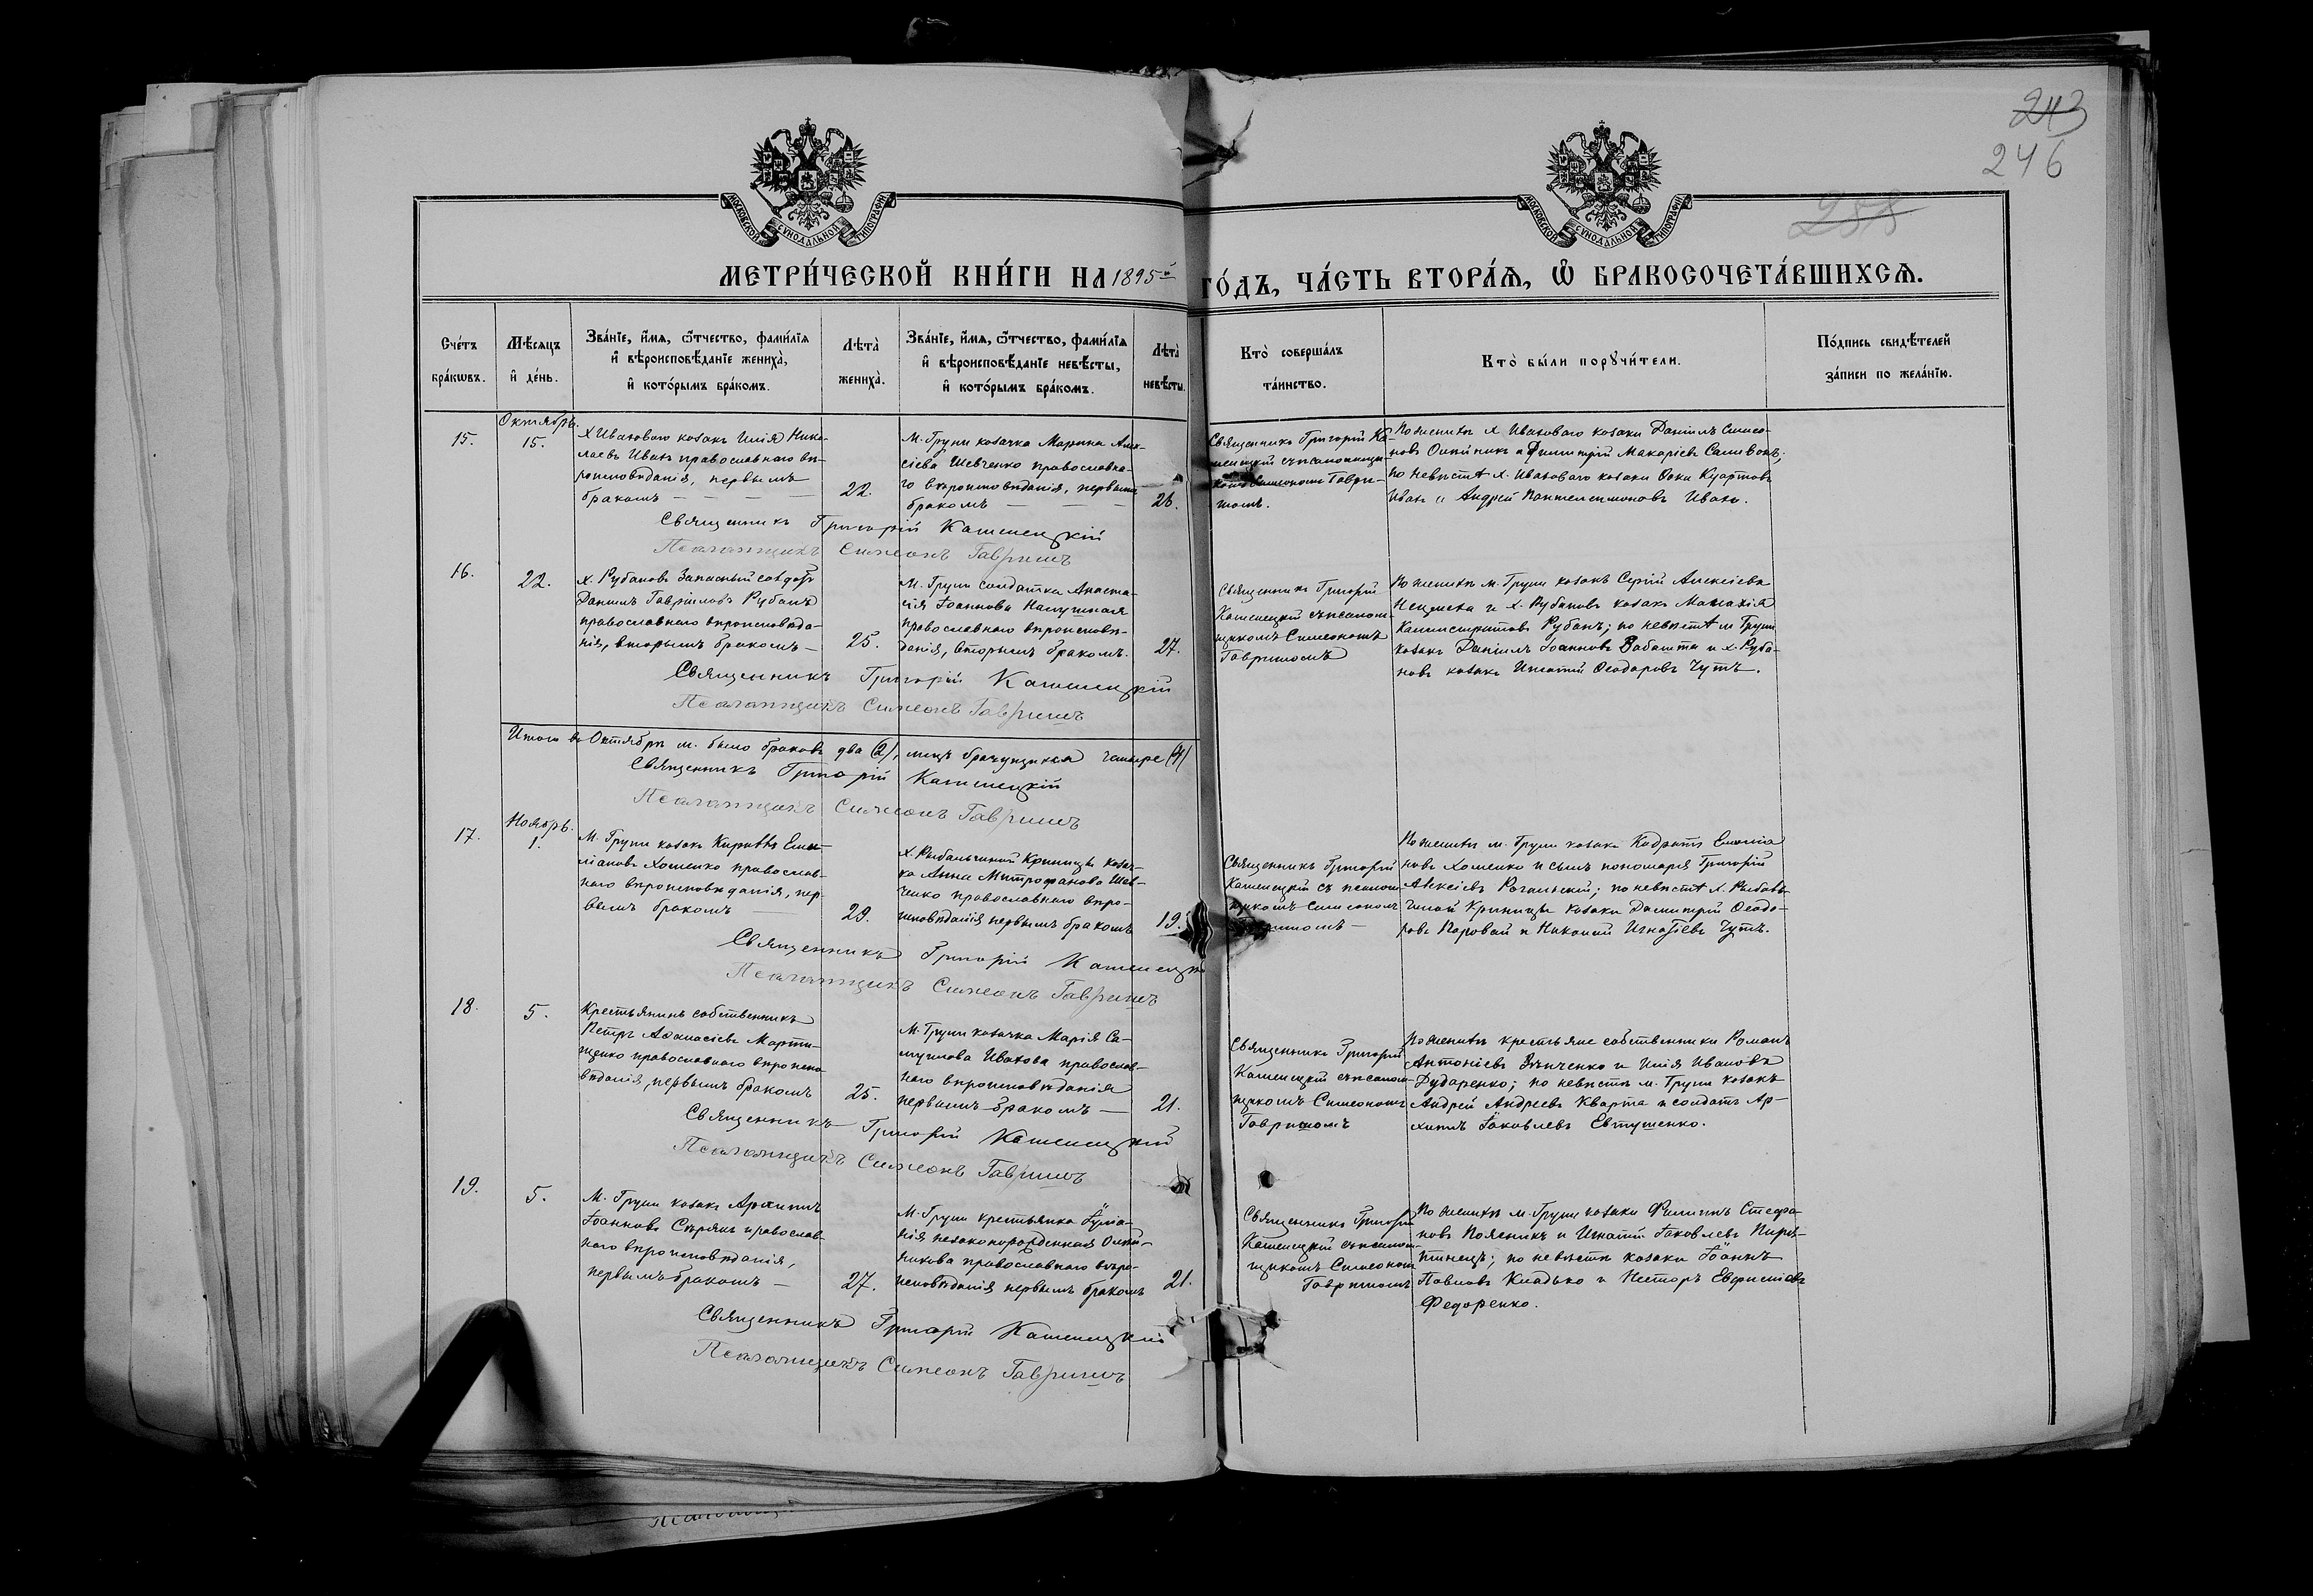 243
246
288
МОСКОВСКОЙ СѴНОДАЛЬНОЙ ТИПОГРАФІИ
МОСКОВСКОЙ СѴНОДАЛЬНОЙ ТИПОГРАФІИ
МЕТРИ́ЧЕСКОЙ КНИ́ГИ НА 1895й ГО́ДЪ, ЧА́СТЬ ВТОРА́Ѧ, Ѡ БРАКОСОЧЕТА́ВШИХСѦ.
Сче́тъ
бра́кѡвъ.
Мѣ́сяцъ
и де́нь.
Зва́нїе, и́мѧ, ѻ́тчество, фами́лїѧ
и вѣроисповѣ́данїе жениха̀,
и кото́рымъ бра́комъ.
Лѣта̀
жениха̀.
Зва́нїе, и́мѧ, ѻ́тчество, фами́лїѧ
и вѣроисповѣ́данїе невѣ́сты,
и кото́рымъ бра́комъ.
Лѣта̀
невѣ́сты.
Кто̀ соверша́лъ
та́инство.
Кто̀ бы́ли порꙋчи́тели.
По́дпись свидѣ́телей
за́писи по жела́нїю.
15.
Октябрь.
15.
Х Иваховаго козакъ Илія Нико-
лаевъ Ивахъ православнаго вѣ-
роисповѣданія, первымъ
бракомъ
22.
М. Груни козачка Марина Алек-
сіева Шевченко православна-
го вѣроисповѣданія, первымъ
бракомъ
26.
Священникъ Григорій Ка-
менецкій съ псаломщи-
комъ Симеономъ Гаври-
шомъ.
По женихѣ х. Иваховаго козаки Даніилъ Симео-
новъ Олійникъ и Димитрій Макаріевъ Саливонъ;
по невѣстѣ х. Иваховаго козаки Фока
Ивахъ и Андрей Пантелеимоновъ Ивахъ.
Священникъ Григорій Каменецкій
Псаломщикъ Симеонъ Гавришъ
16.
22.
х. Рубановъ Запасный солдатъ
Даніилъ Гавріиловъ Рубанъ
православнаго вѣроисповѣда-
нія, вторымъ бракомъ
25.
М. Груни солдатка Анаста-
сія Іоаннова
православнаго вѣроисповѣ-
данія, вторымъ бракомъ.
27.
Священникъ Григорій
Каменецкій съ псалом-
щикомъ Симеономъ
Гавришомъ
По женихѣ м. Груни козакъ Сергій Алексіевъ
и х. Рубановъ козакъ Малахія
Каллистратовъ Рубанъ; по невѣстѣ м. Груни
козакъ Даніилъ Іоанновъ Бабашта и х. Руба-
новъ козакъ Игнатій Ѳеодоровъ Чутъ.
Священникъ Григорій Каменецкій
Псаломщикъ Симеонъ Гавришъ
Итого въ Октябрѣ м. было браковъ два (2), лицъ брачущихся четыре (4)
Священникъ Григорій Каменецкій
Псаломщикъ Симеонъ Гавришъ
17.
Ноябрь.
1.
М. Груни козакъ Кириллъ Емел-
ліановъ Хоменко православ-
наго вѣроисповѣданія, пер-
вымъ бракомъ
29.
х. Рыбальчиной Криницы козач-
ка Анна Митрофанова Шев-
ченко православнаго вѣро-
исповѣданія первымъ бракомъ
19.
Священникъ Григорій
Каменецкій съ псалом-
щикомъ Симеономъ
Гавришомъ
По женихѣ м. Груни козакъ Кодратъ Емелліа
новъ Хоменко и сынъ пономаря Григорій
Алексіевъ; по невѣстѣ х. Рыбаль-
чиной Криницы козаки Димитрій Ѳеодо-
ровъ Паровай и Николай Игнатіевъ Чутъ.
Священникъ Григорій Каменецкій
Псаломщикъ Симеонъ Гавришъ
18.
5.
Крестьянинъ собственникъ
Петръ Аѳанасіевъ Марти-
щенко православнаго вѣроиспо-
вѣданія, первымъ бракомъ
25.
М. Груни козачка Марія Са-
муилова Ивахова православ-
наго вѣроисповѣданія
первымъ бракомъ
21.
Священникъ Григорій
Каменецкій съ псалом-
щикомъ Симеономъ
Гавришомъ
По женихѣ крестьяне собственники Романъ
Антоніевъ и Илія Ивановъ
Дударенко; по невѣстѣ м. Груни козакъ
Андрей Андреевъ Кварта и солдатъ Ар-
хипъ Іаковлевъ Евтушенко.
Священникъ Григорій Каменецкій
Псаломщикъ Симеонъ Гавришъ
19.
5.
М. Груни козакъ Архипъ
Іоанновъ Сѣрякъ православ-
наго вѣроисповѣданія,
первымъ бракомъ
27.
М. Груни крестьянка Іуліа-
нія незаконорожденная Олей-
никова православнаго вѣро-
исповѣданія первымъ бракомъ
21.
Священникъ Григорій
Каменецкій съ псалом-
щикомъ Симеономъ
Гавришомъ
По женихѣ м. Груни козаки Филиппъ Стефа-
новъ Поясникъ и Игнатій Іаковлевъ Пиря-
тинецъ; по невѣстѣ козаки Іоаннъ
Павловъ Кладько и Несторъ Евфиміевъ
Федоренко.
Священникъ Григорій Каменецкій
Псаломщикъ Симеонъ Гавришъ